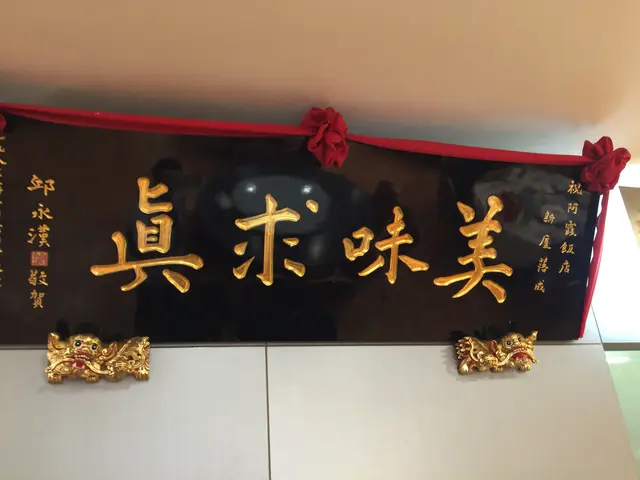 祝阿霞飯店
新廈落成
美味求眞
邱永漢
敬賀